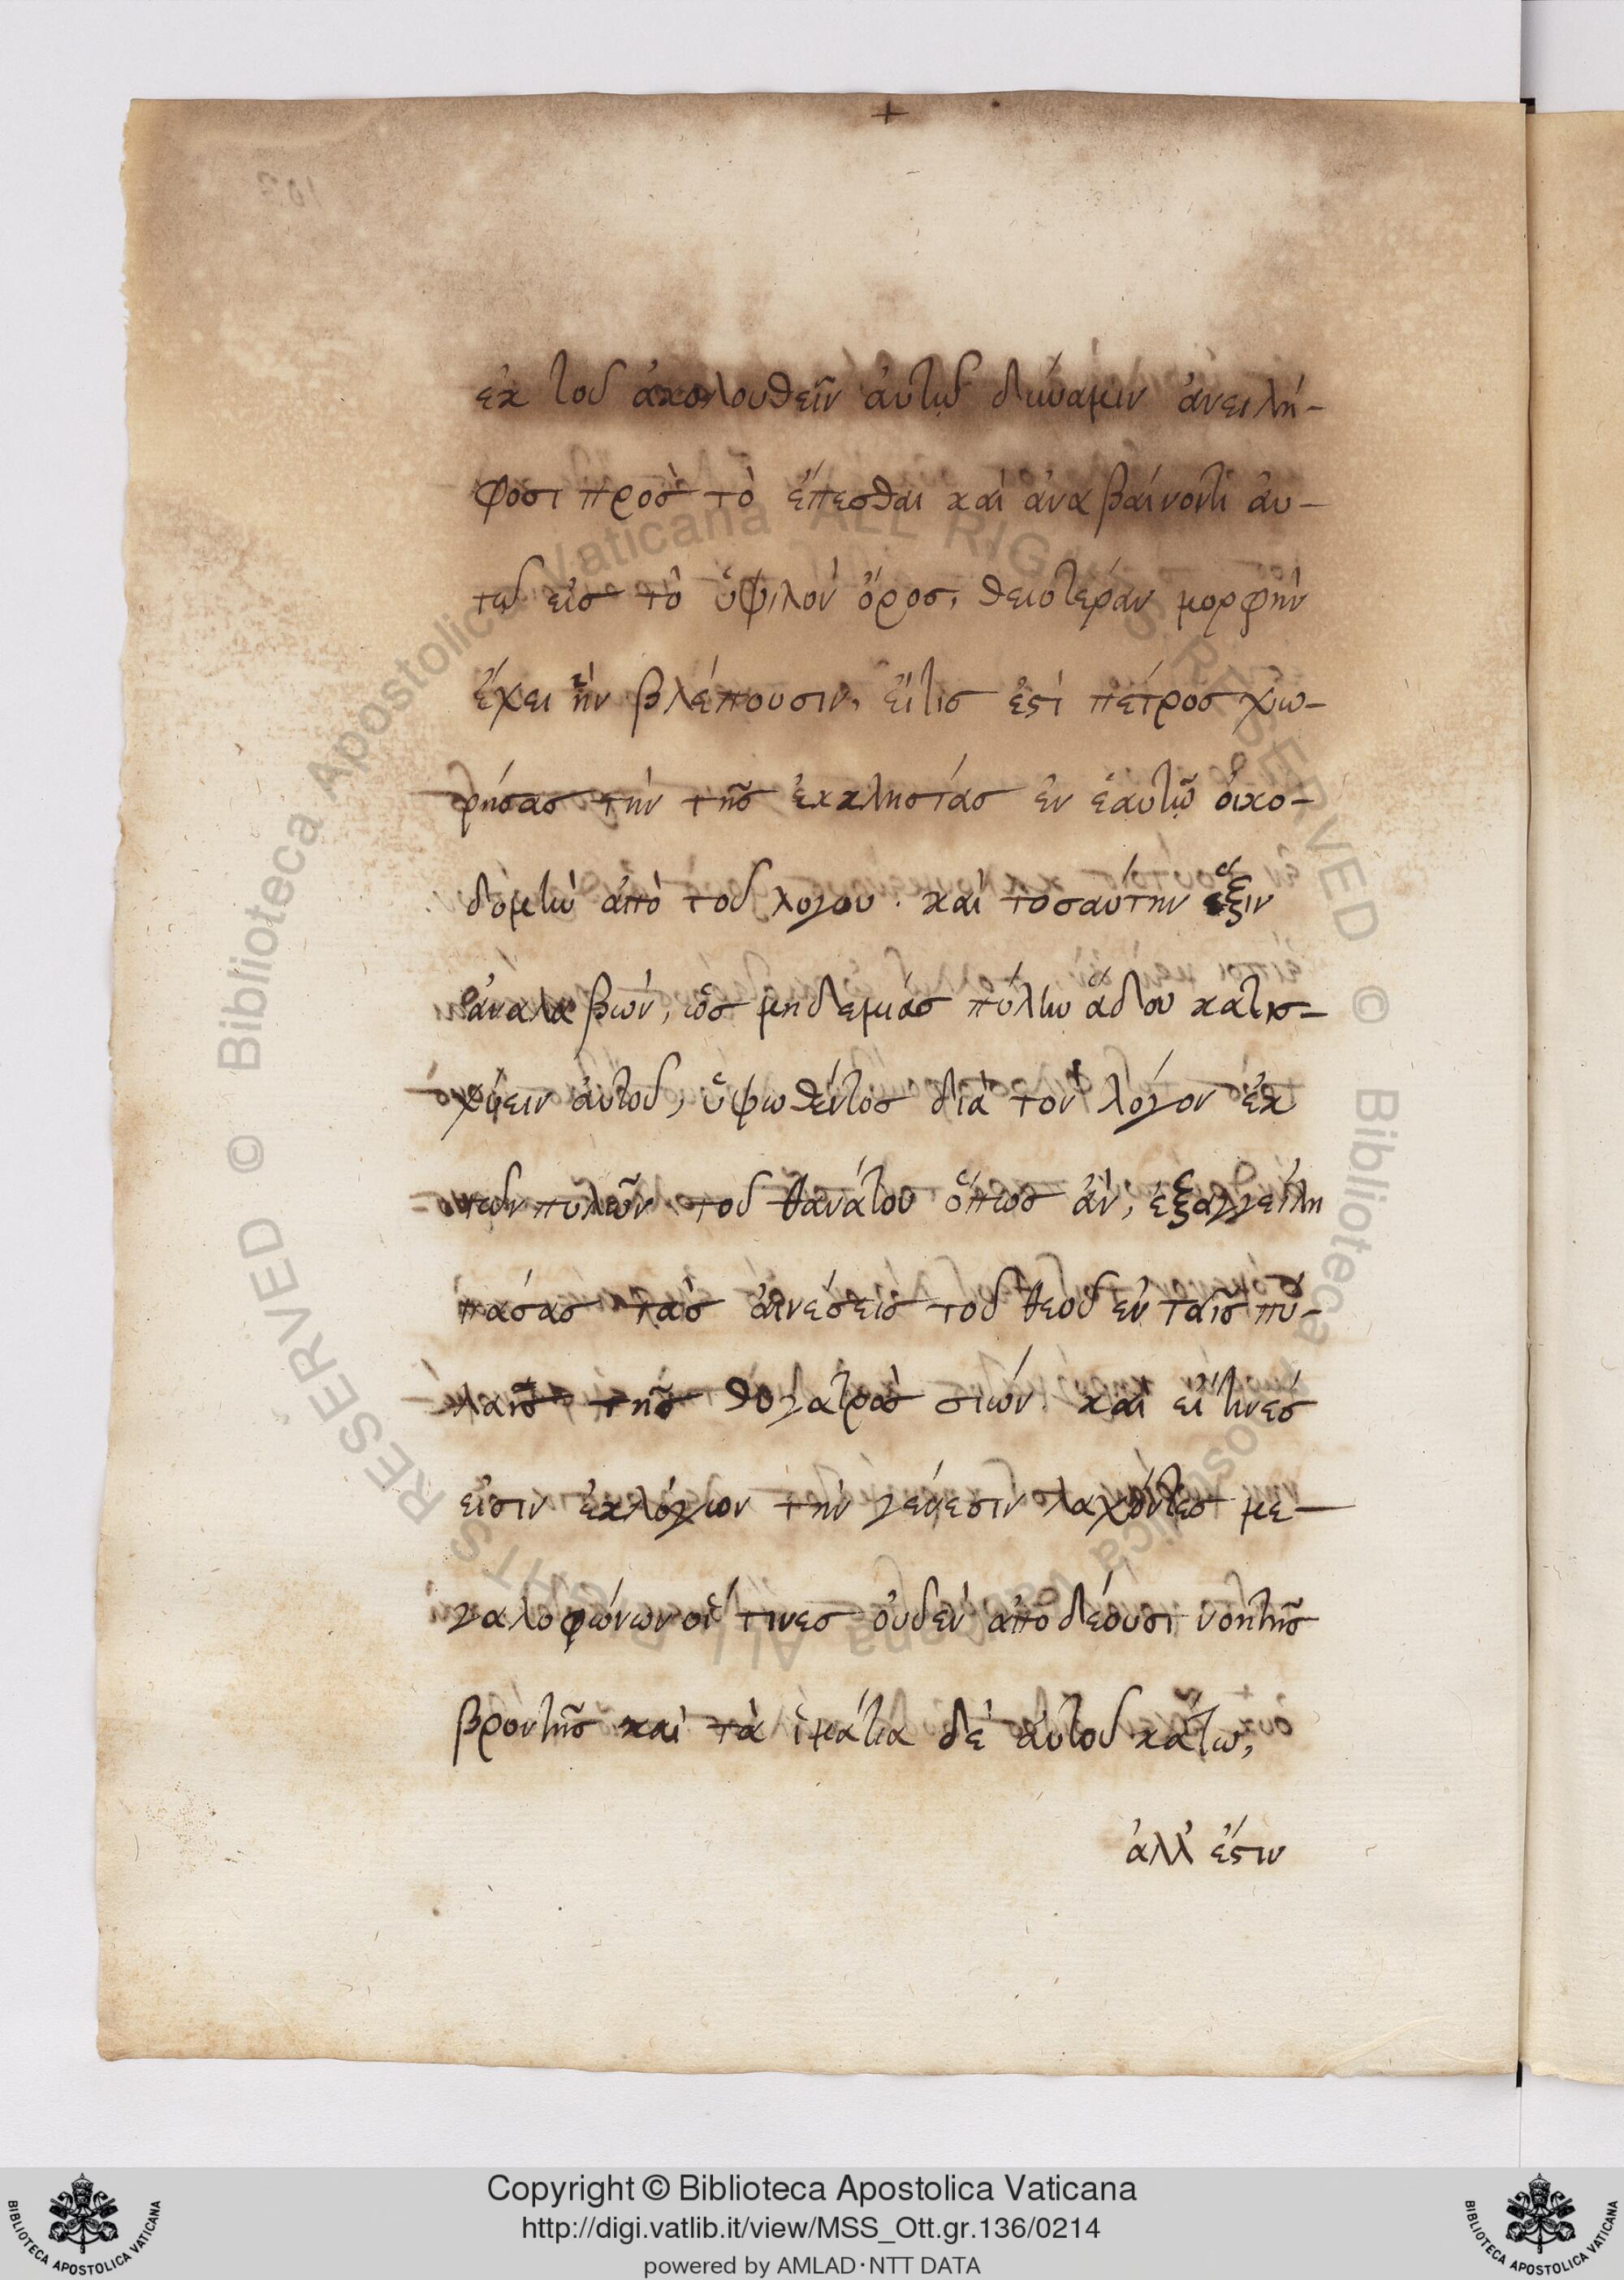 +
ἐκ τοῦ ἀκολουθεῖν ἀυτῷ δύναμιν ἀνειλή-
φοσι πρὸς τὸ ἕπεσθαι καὶ ἀναβαίνοντι ἀυ-
τῷ εἰς τὸ ὑψιλὸν ὄρος, θειοτέραν μορφὴν
ἔχει ἣν βλέπουσιν, εἴτις ἐστὶ πέτρος χω-
ρήσας τὴν τῆς ἐκκλησίας ἐν ἑαυτῷ ὀικο-
δομὴν ἀπὸ τοῦ λόγου. καὶ τοσαύτην ἕξιν
ἀναλαβὼν, ὡς μηδεμιάς πύλην ἅδου κατισ-
χύειν ἀυτοῦ, ὑψωθέντος διὰ τὸν λόγον ἐκ
τῶν πυλῶν τοῦ θανάτου ὅπως ἂν, ἐξαγγείλη
πάσας τὰς ἀινέσεις τοῦ θεοῦ ἐν ταῖς πύ-
λαις τῆς θυγατρὸς σιών. καὶ εἴ τινές
εἰσιν ἐκλόγων τὴν γένεσιν λαχόντες με-
γαλοφώνων οἵ τινες ὀυδὲν ἀποδέουσι νοητῆς
βροντῆς καὶ τὰ ἱμάτια δὲ ἀυτοῦ κάτω,
ἀλλ' ἔστιν
Copyright © Biblioteca Apostolica Vaticana
http://digi.vatlib.it/view/MSS_Ott.gr.136/0214
powered by AMLAD·NTT DATA
BIBLIOTECA APOSTOLICA VATICANA
BIBLIOTECA APOSTOLICA VATICANA
© Biblioteca Apostolica Vaticana ALL RIGHTS RESERVED © Biblioteca Apostolica Vaticana ALL RIGHTS RESERVED